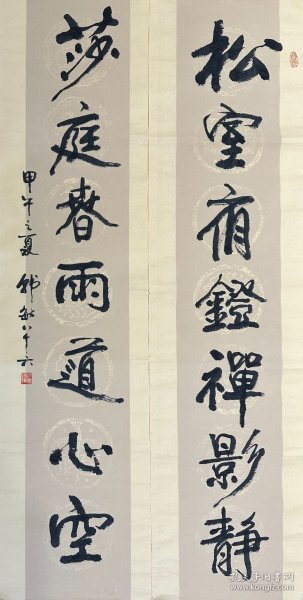 松室宵鐙禪影靜
莎庭春雨道心空
甲午之夏 韩敏八十六
孔夫子旧书网